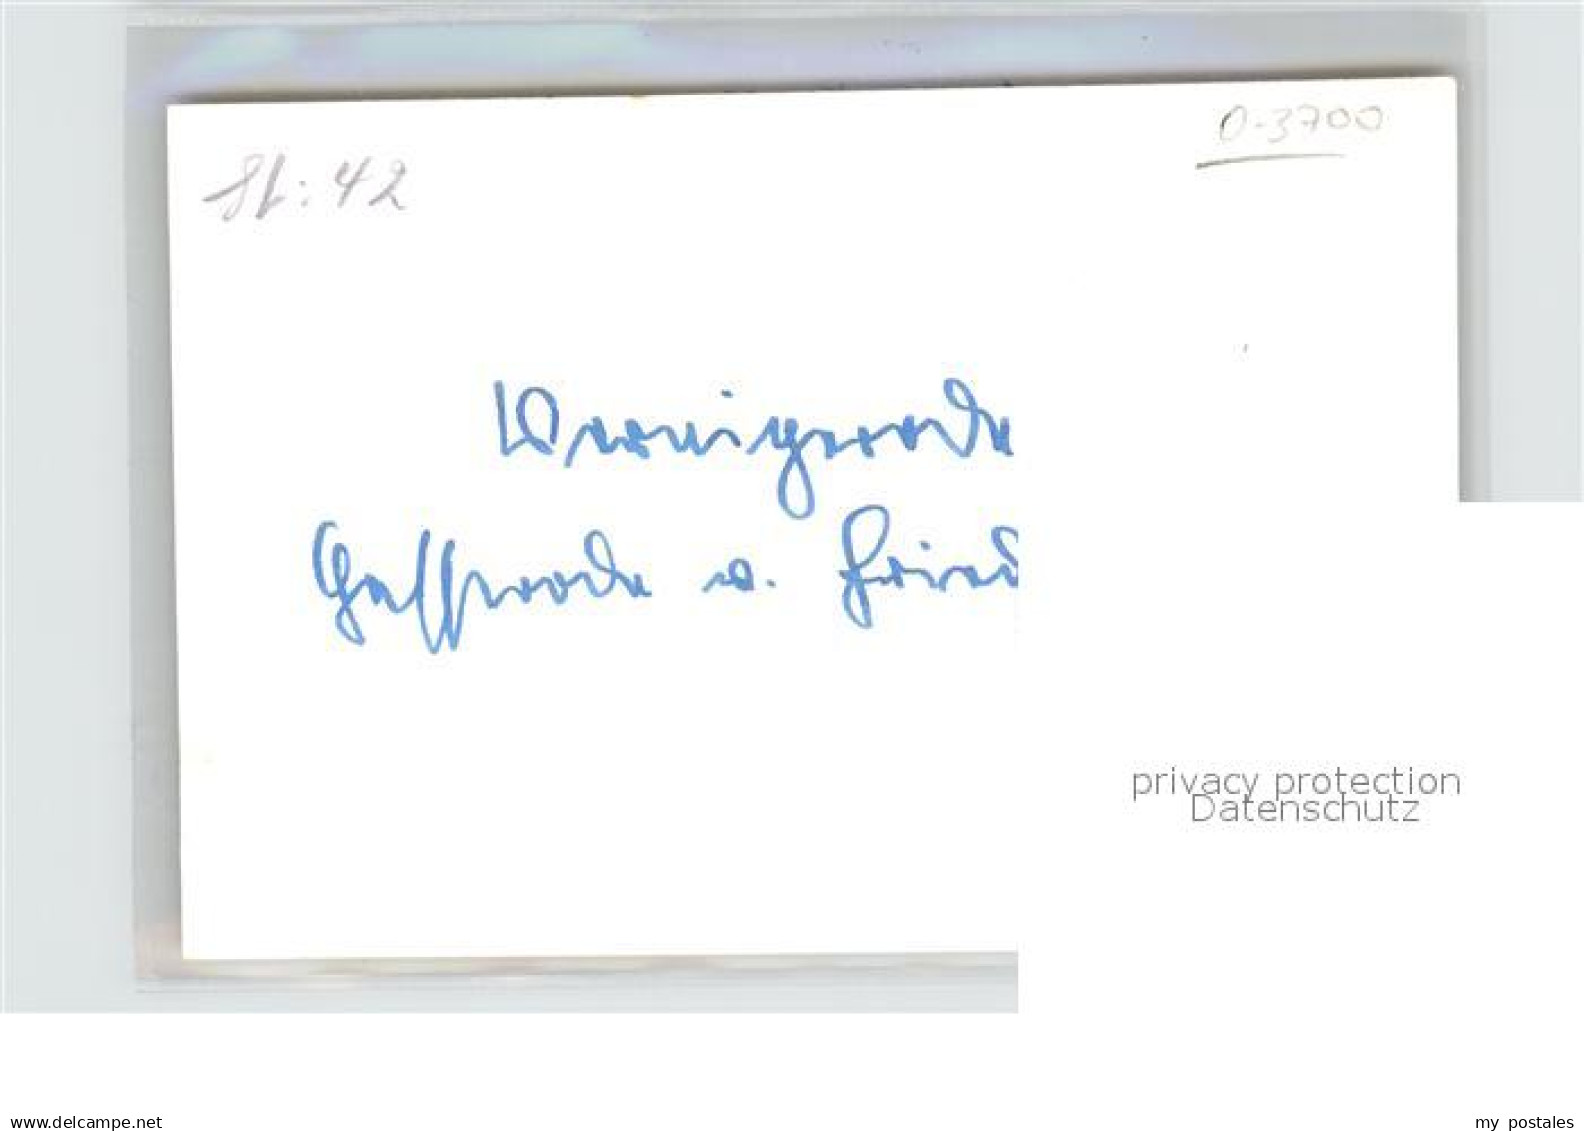 O-3700
St: 42
Wernigerode
Hasserode u. Fried
privacy protection
Datenschutz
www.delcampe.net
my postales